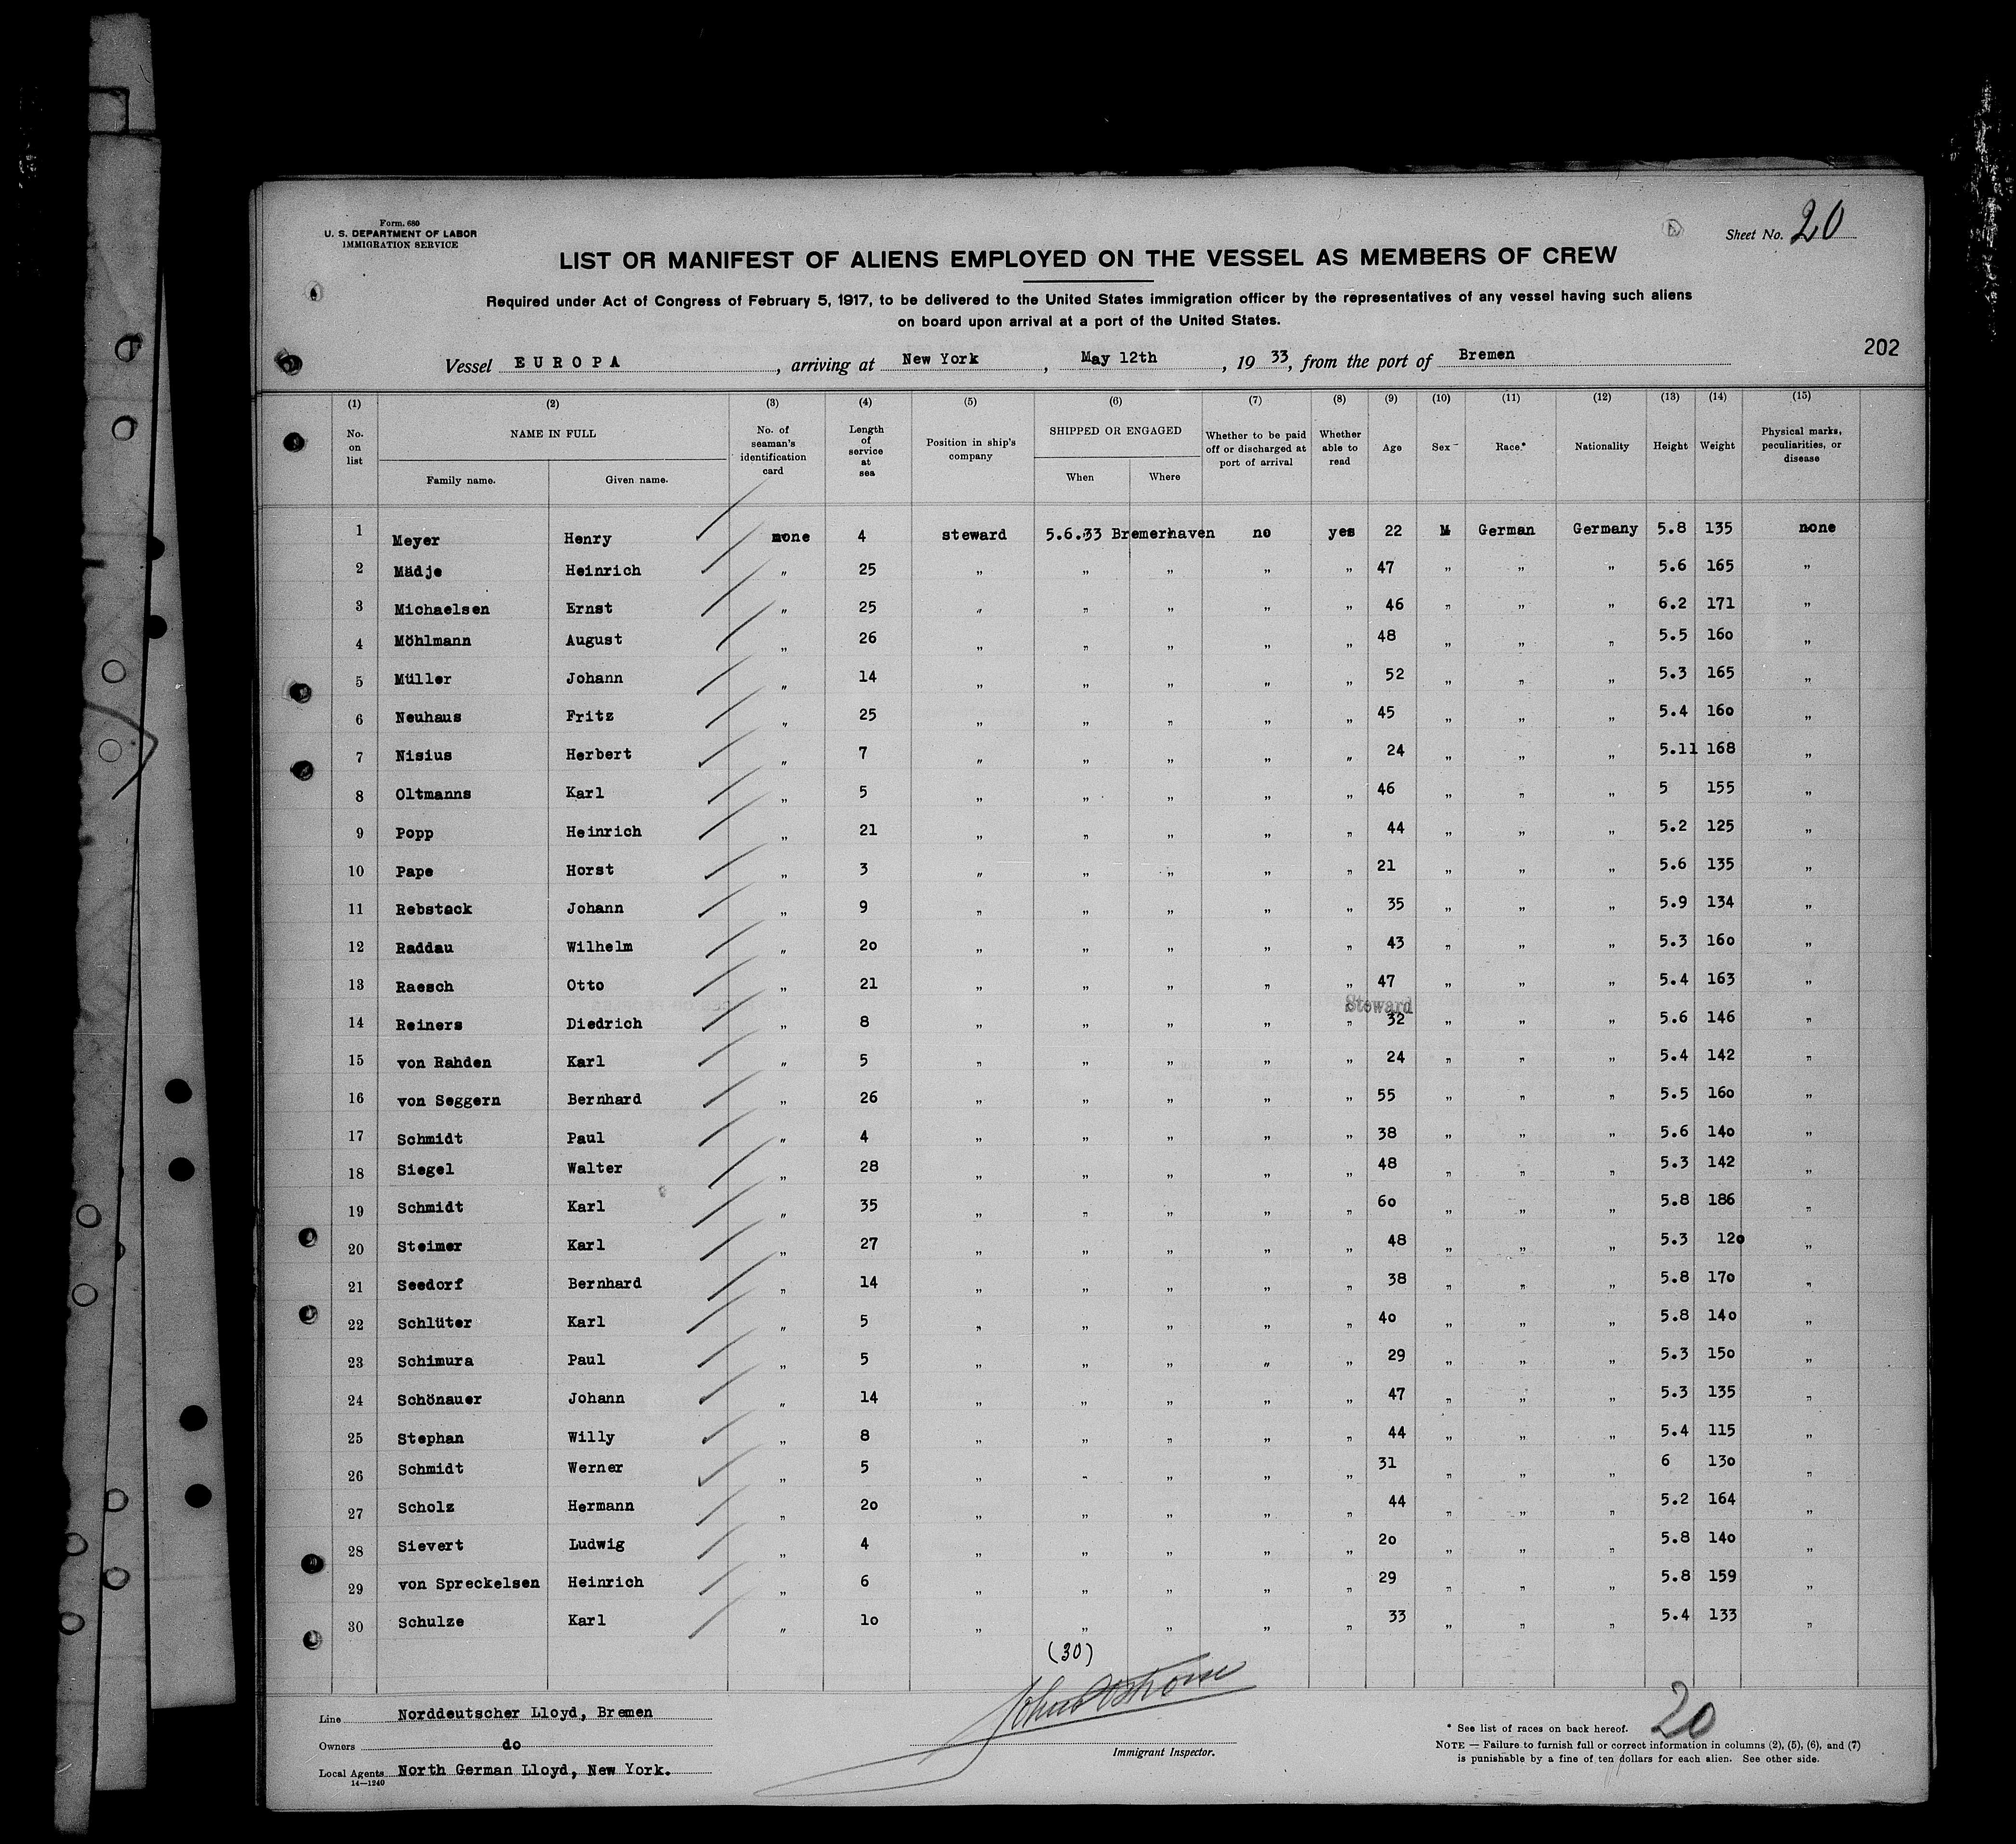 Form. 680
U. S. DEPARTMENT OF LABOR
IMMIGRATION SERVICE
Sheet No. 20
LIST OR MANIFEST OF ALIENS EMPLOYED ON THE VESSEL AS MEMBERS OF CREW
Required under Act of Congress of February 5, 1917, to be delivered to the United States immigration officer by the representatives of any vessel having such aliens
on board upon arrival at a port of the United States.
202
Vessel EUROPA, arriving at New York, May 12th, 19 33, from the port of Bremen
(1) (2) (3) (4) (5) (6) (7) (8) (9) (10) (11) (12) (13) (14) (15)
No. on list NAME IN FULL Family name. Given name. No. of seaman's identification card Length of service at sea Position in ship's company SHIPPED OR ENGAGED When Where Whether to be paid off or discharged at port of arrival Whether able to read Age Sex Race.* Nationality Height Weight Physical marks, peculiarities, or disease
1 Meyer Henry none 4 steward 5.6.33 Bremerhaven no yes 22 M German Germany 5.8 135 none
2 Mädje Heinrich „ 25 „ „ „ „ „ 47 „ „ „ 5.6 165 „
3 Michaelsen Ernst „ 25 „ „ „ „ „ 46 „ „ „ 6.2 171 „
4 Möhlmann August „ 26 „ „ „ „ „ 48 „ „ „ 5.5 160 „
5 Müller Johann „ 14 „ „ „ „ „ 52 „ „ „ 5.3 165 „
6 Neuhaus Fritz „ 25 „ „ „ „ „ 45 „ „ „ 5.4 160 „
7 Nisius Herbert „ 7 „ „ „ „ „ 24 „ „ „ 5.11 168 „
8 Oltmanns Karl „ 5 „ „ „ „ „ 46 „ „ „ 5 155 „
9 Popp Heinrich „ 21 „ „ „ „ „ 44 „ „ „ 5.2 125 „
10 Pape Horst „ 3 „ „ „ „ „ 21 „ „ „ 5.6 135 „
11 Rebstock Johann „ 9 „ „ „ „ „ 35 „ „ „ 5.9 134 „
12 Raddau Wilhelm „ 20 „ „ „ „ „ 43 „ „ „ 5.3 160 „
13 Raesch Otto „ 21 „ „ „ „ „ 47 „ „ „ 5.4 163 „
Steward
14 Reiners Diedrich „ 8 „ „ „ „ „ 32 „ „ „ 5.6 146 „
15 von Rahden Karl „ 5 „ „ „ „ „ 24 „ „ „ 5.4 142 „
16 von Seggern Bernhard „ 26 „ „ „ „ „ 55 „ „ „ 5.5 160 „
17 Schmidt Paul „ 4 „ „ „ „ „ 38 „ „ „ 5.6 140 „
18 Siegel Walter „ 28 „ „ „ „ „ 48 „ „ „ 5.3 142 „
19 Schmidt Karl „ 35 „ „ „ „ „ 60 „ „ „ 5.8 186 „
20 Steimer Karl „ 27 „ „ „ „ „ 48 „ „ „ 5.3 120 „
21 Seedorf Bernhard „ 14 „ „ „ „ „ 38 „ „ „ 5.8 170 „
22 Schlüter Karl „ 5 „ „ „ „ „ 40 „ „ „ 5.8 140 „
23 Schimura Paul „ 5 „ „ „ „ „ 29 „ „ „ 5.3 150 „
24 Schönauer Johann „ 14 „ „ „ „ „ 47 „ „ „ 5.3 135 „
25 Stephan Willy „ 8 „ „ „ „ „ 44 „ „ „ 5.4 115 „
26 Schmidt Werner „ 5 „ „ „ „ „ 31 „ „ „ 6 130 „
27 Scholz Hermann „ 20 „ „ „ „ „ 44 „ „ „ 5.2 164 „
28 Sievert Ludwig „ 4 „ „ „ „ „ 20 „ „ „ 5.8 140 „
29 von Spreckelsen Heinrich „ 6 „ „ „ „ „ 29 „ „ „ 5.8 159 „
30 Schulze Karl „ 10 „ „ „ „ „ 33 „ „ „ 5.4 133 „
(30)
Line Norddeutscher Lloyd, Bremen
Owners do
Local Agents North German Lloyd, New York.
14—1240
Immigrant Inspector.
20
* See list of races on back hereof.
NOTE — Failure to furnish full or correct information in columns (2), (5), (6), and (7)
is punishable by a fine of ten dollars for each alien. See other side.